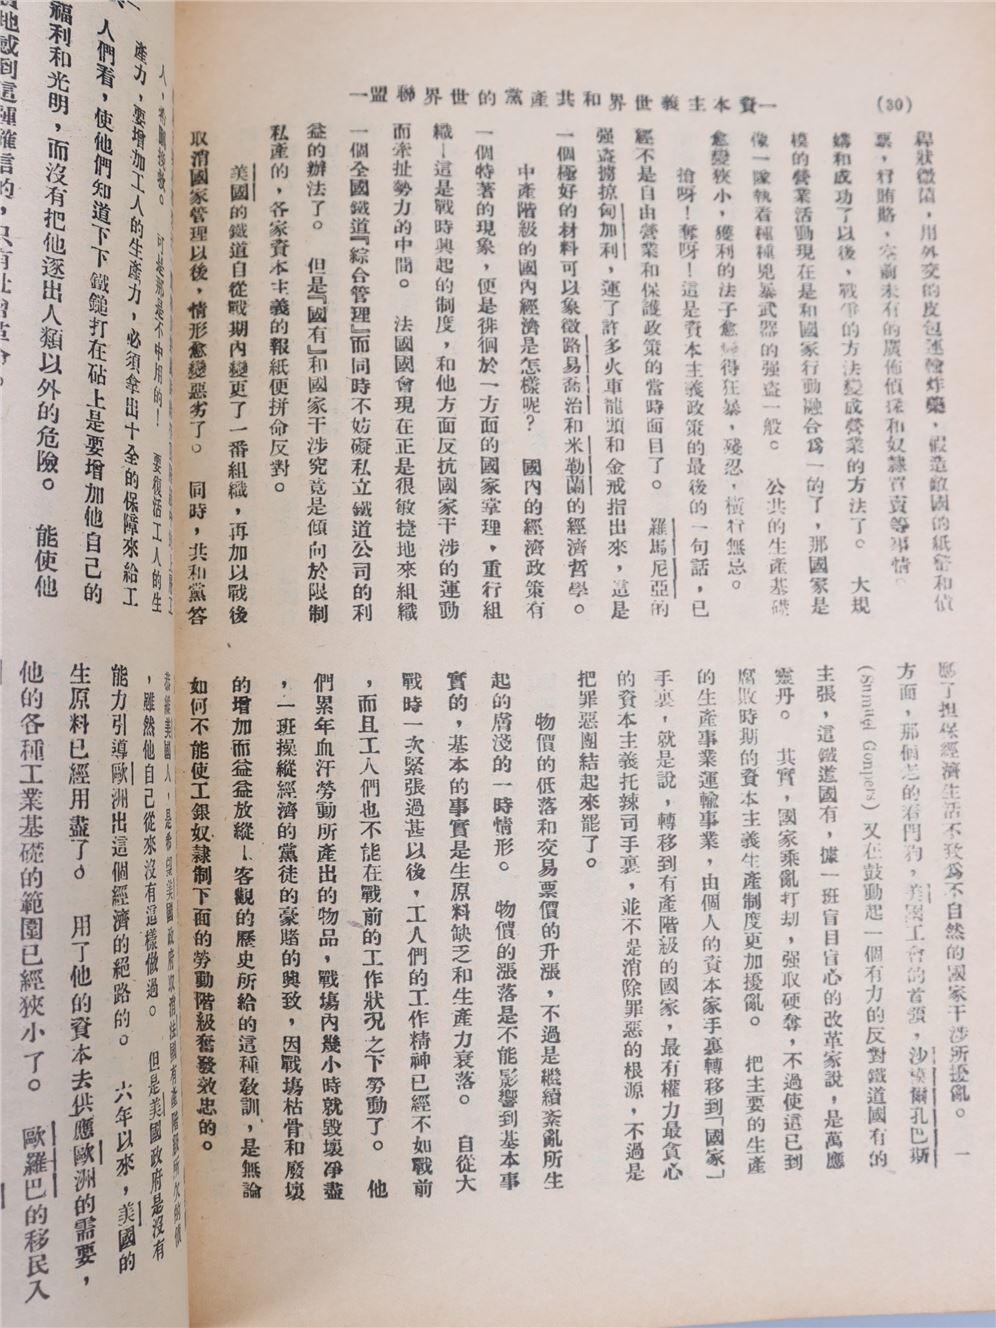 (30)
一資本主義世界和共產黨的世界聯盟一
桿狀微菌，用外交的皮包運輸炸藥，假造敵國的紙幣和債
票，行賄賂，空前未有的廣佈偵探和奴隸買賣等事情。
媾和成功了以後，戰爭的方法變成營業的方法了。　大規
模的營業活動現在是和國家行動融合爲一的了，那國家是
像一隊執着種種兇暴武器的强盜一般。　公共的生產基礎
愈變狹小，獲利的法子愈得狂暴，殘忍，橫行無忌。
搶呀！奪呀！這是資本主義政策的最後的一句話，已
經不是自由營業和保護政策的當時面目了。　羅馬尼亞的
强盜擄掠匈加利，運了許多火車龍頭和金戒指出來，這是
一個極好的材料可以象徵路易喬治和米勒蘭的經濟哲學。
中產階級的國內經濟是怎樣呢？　國內的經濟政策有
一個特著的現象，便是徘徊於一方面的國家掌理，重行組
織—這是戰時興起的制度，和他方面反抗國家干涉的運動
而牽扯勢力的中間。　法國國會現在正是很敏捷地來組織
一個全國鐵道『綜合管理』而同時不妨礙私立鐵道公司的利
益的辦法了。　但是『國有』和國家干涉究竟是傾向於限制
私產的，各家資本主義的報紙便拼命反對。
美國的鐵道自從戰期內變更了一番組織，再加以戰後
取消國家管理以後，情形愈變惡劣了。　同時，共和黨答
應了担保經濟生活不致爲不自然的國家干涉所擾亂。　一
方面，那個老的看門狗，美國工會的首領，沙模爾孔巴斯
(Samuel Gompers) 又在鼓動起一個有力的反對鐵道國有的
主張，這鐵道國有，據一班盲目盲心的改革家說，是萬應
靈丹。　其實，國家乘亂打刧，强取硬奪，不過使這已到
腐敗時期的資本主義生產制度更加擾亂。　把主要的生產
的生產事業運輸事業，由個人的資本家手裏轉移到「國家」
手裏，就是說，轉移到有產階級的國家，最有權力最貪心
的資本主義托辣司手裏，並不是消除罪惡的根源，不過是
把罪惡團結起來罷了。
物價的低落和交易票價的升漲，不過是繼續紊亂所生
起的膚淺的一時情形。　物價的漲落是不能影響到基本事
實的，基本的事實是生原料缺乏和生產力衰落。　自從大
戰時一次緊張過甚以後，工人們的工作精神已經不如戰前
，而且工人們也不能在戰前的工作狀況之下勞動了。　他
們累年血汗勞動所產出的物品，戰塲內幾小時就毀壞凈盡
，一班操縱經濟的黨徒的豪賭的興致，因戰塲枯骨和廢壞
的增加而益益放縱—客觀的歷史所給的這種敎訓，是無論
如何不能使工銀奴隸制下面的勞動階級奮發效忠的。
可是那是不中用的！　要復活工人的生
產力，要增加工人的生產力，必須拿出十全的保障來給工
人們看，使他們知道下下鐵鎚打在砧上是要增加他自己的
福利和光明，而沒有把他逐出人類以外的危險。　能使他
，是希望美國政府取消
，雖然他自己從來沒有這樣做過。　但是美國政府是沒有
能力引導歐洲出這個經濟的絕路的。　六年以來，美國的
生原料已經用盡了。　用了他的資本去供應歐洲的需要，
他的各種工業基礎的範圍已經狹小了。　歐羅巴的移民入